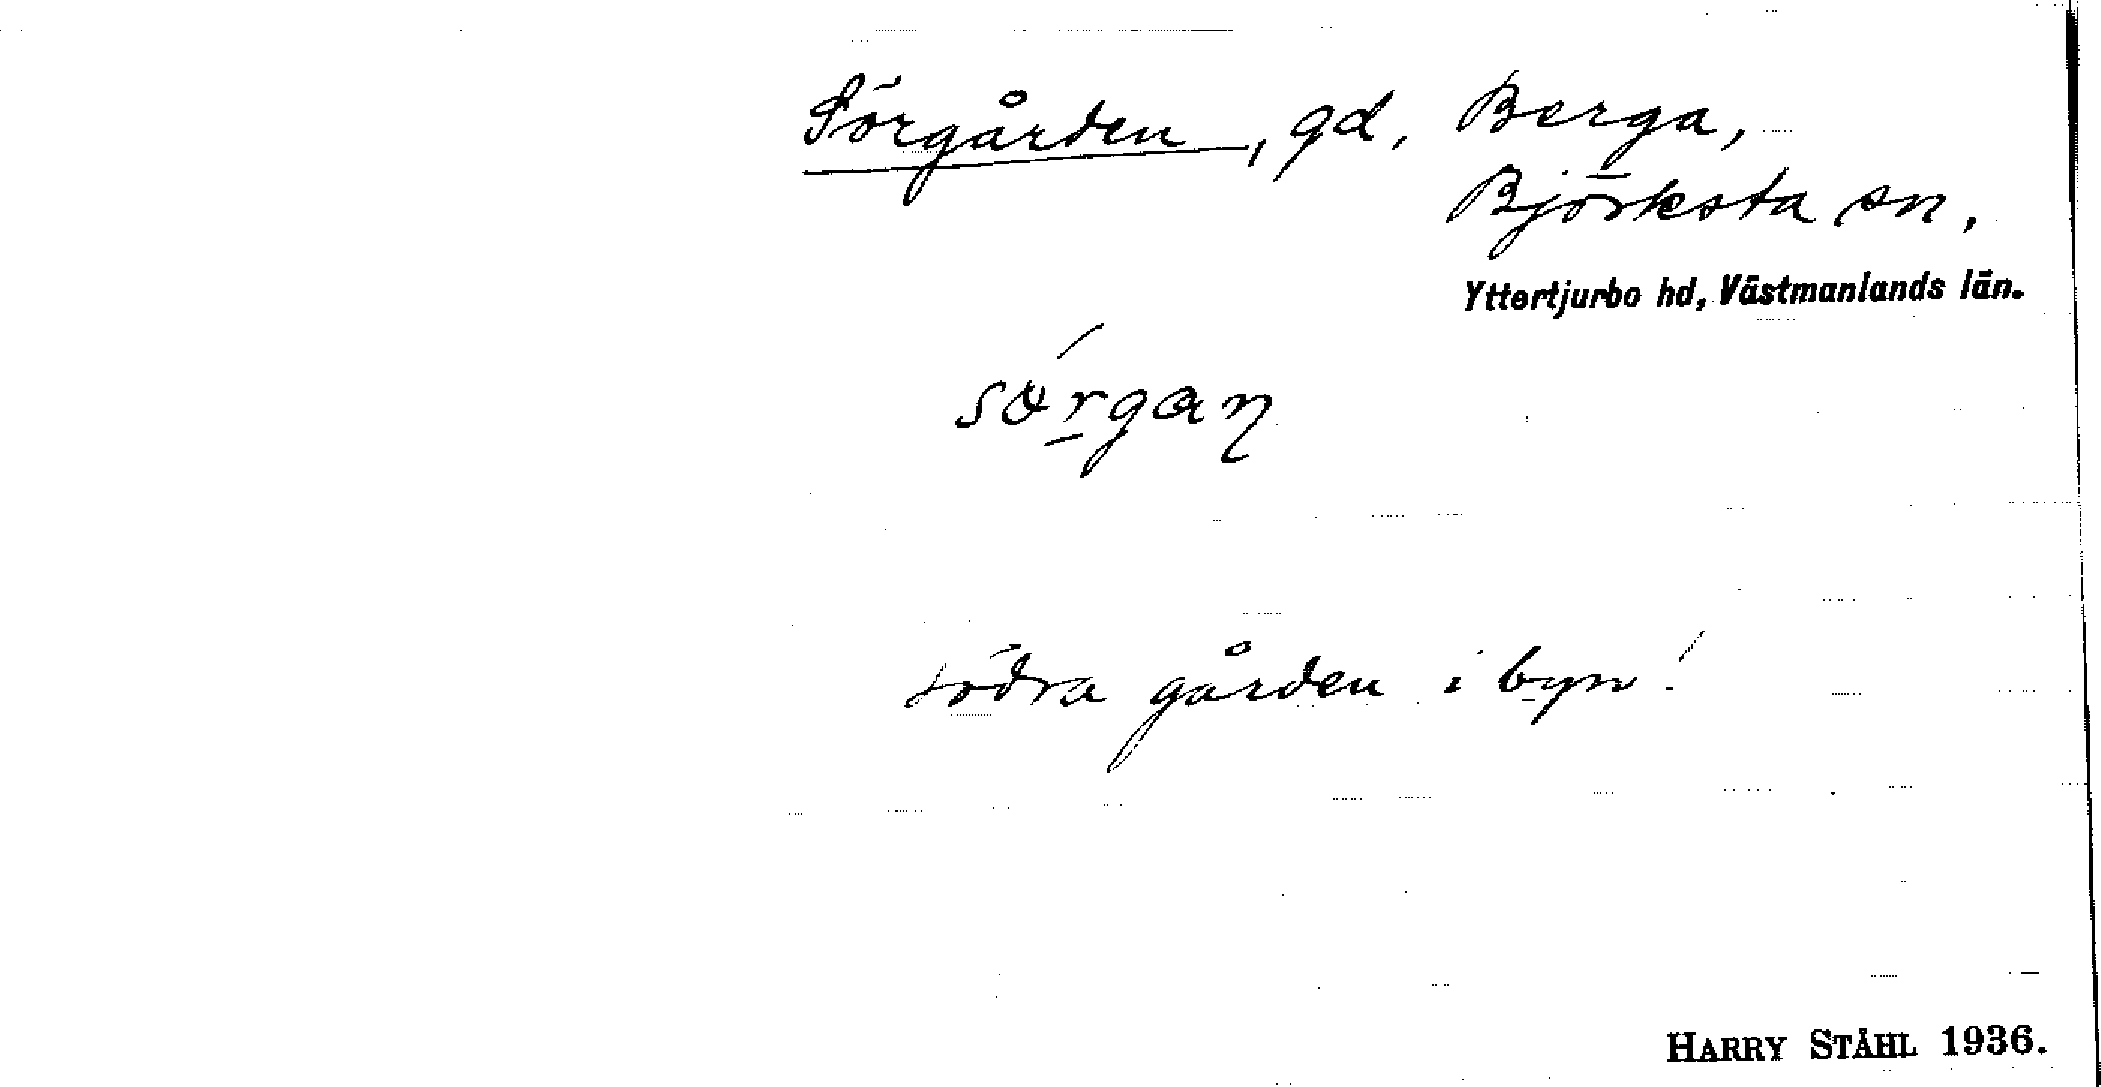 Sörgården, gd, Berga,
Björksta sn,
Yttertjurbo hd, Västmanlands län.
sö́rgaɳ
södra gården i byn!
HARRY STÅHL 1936.